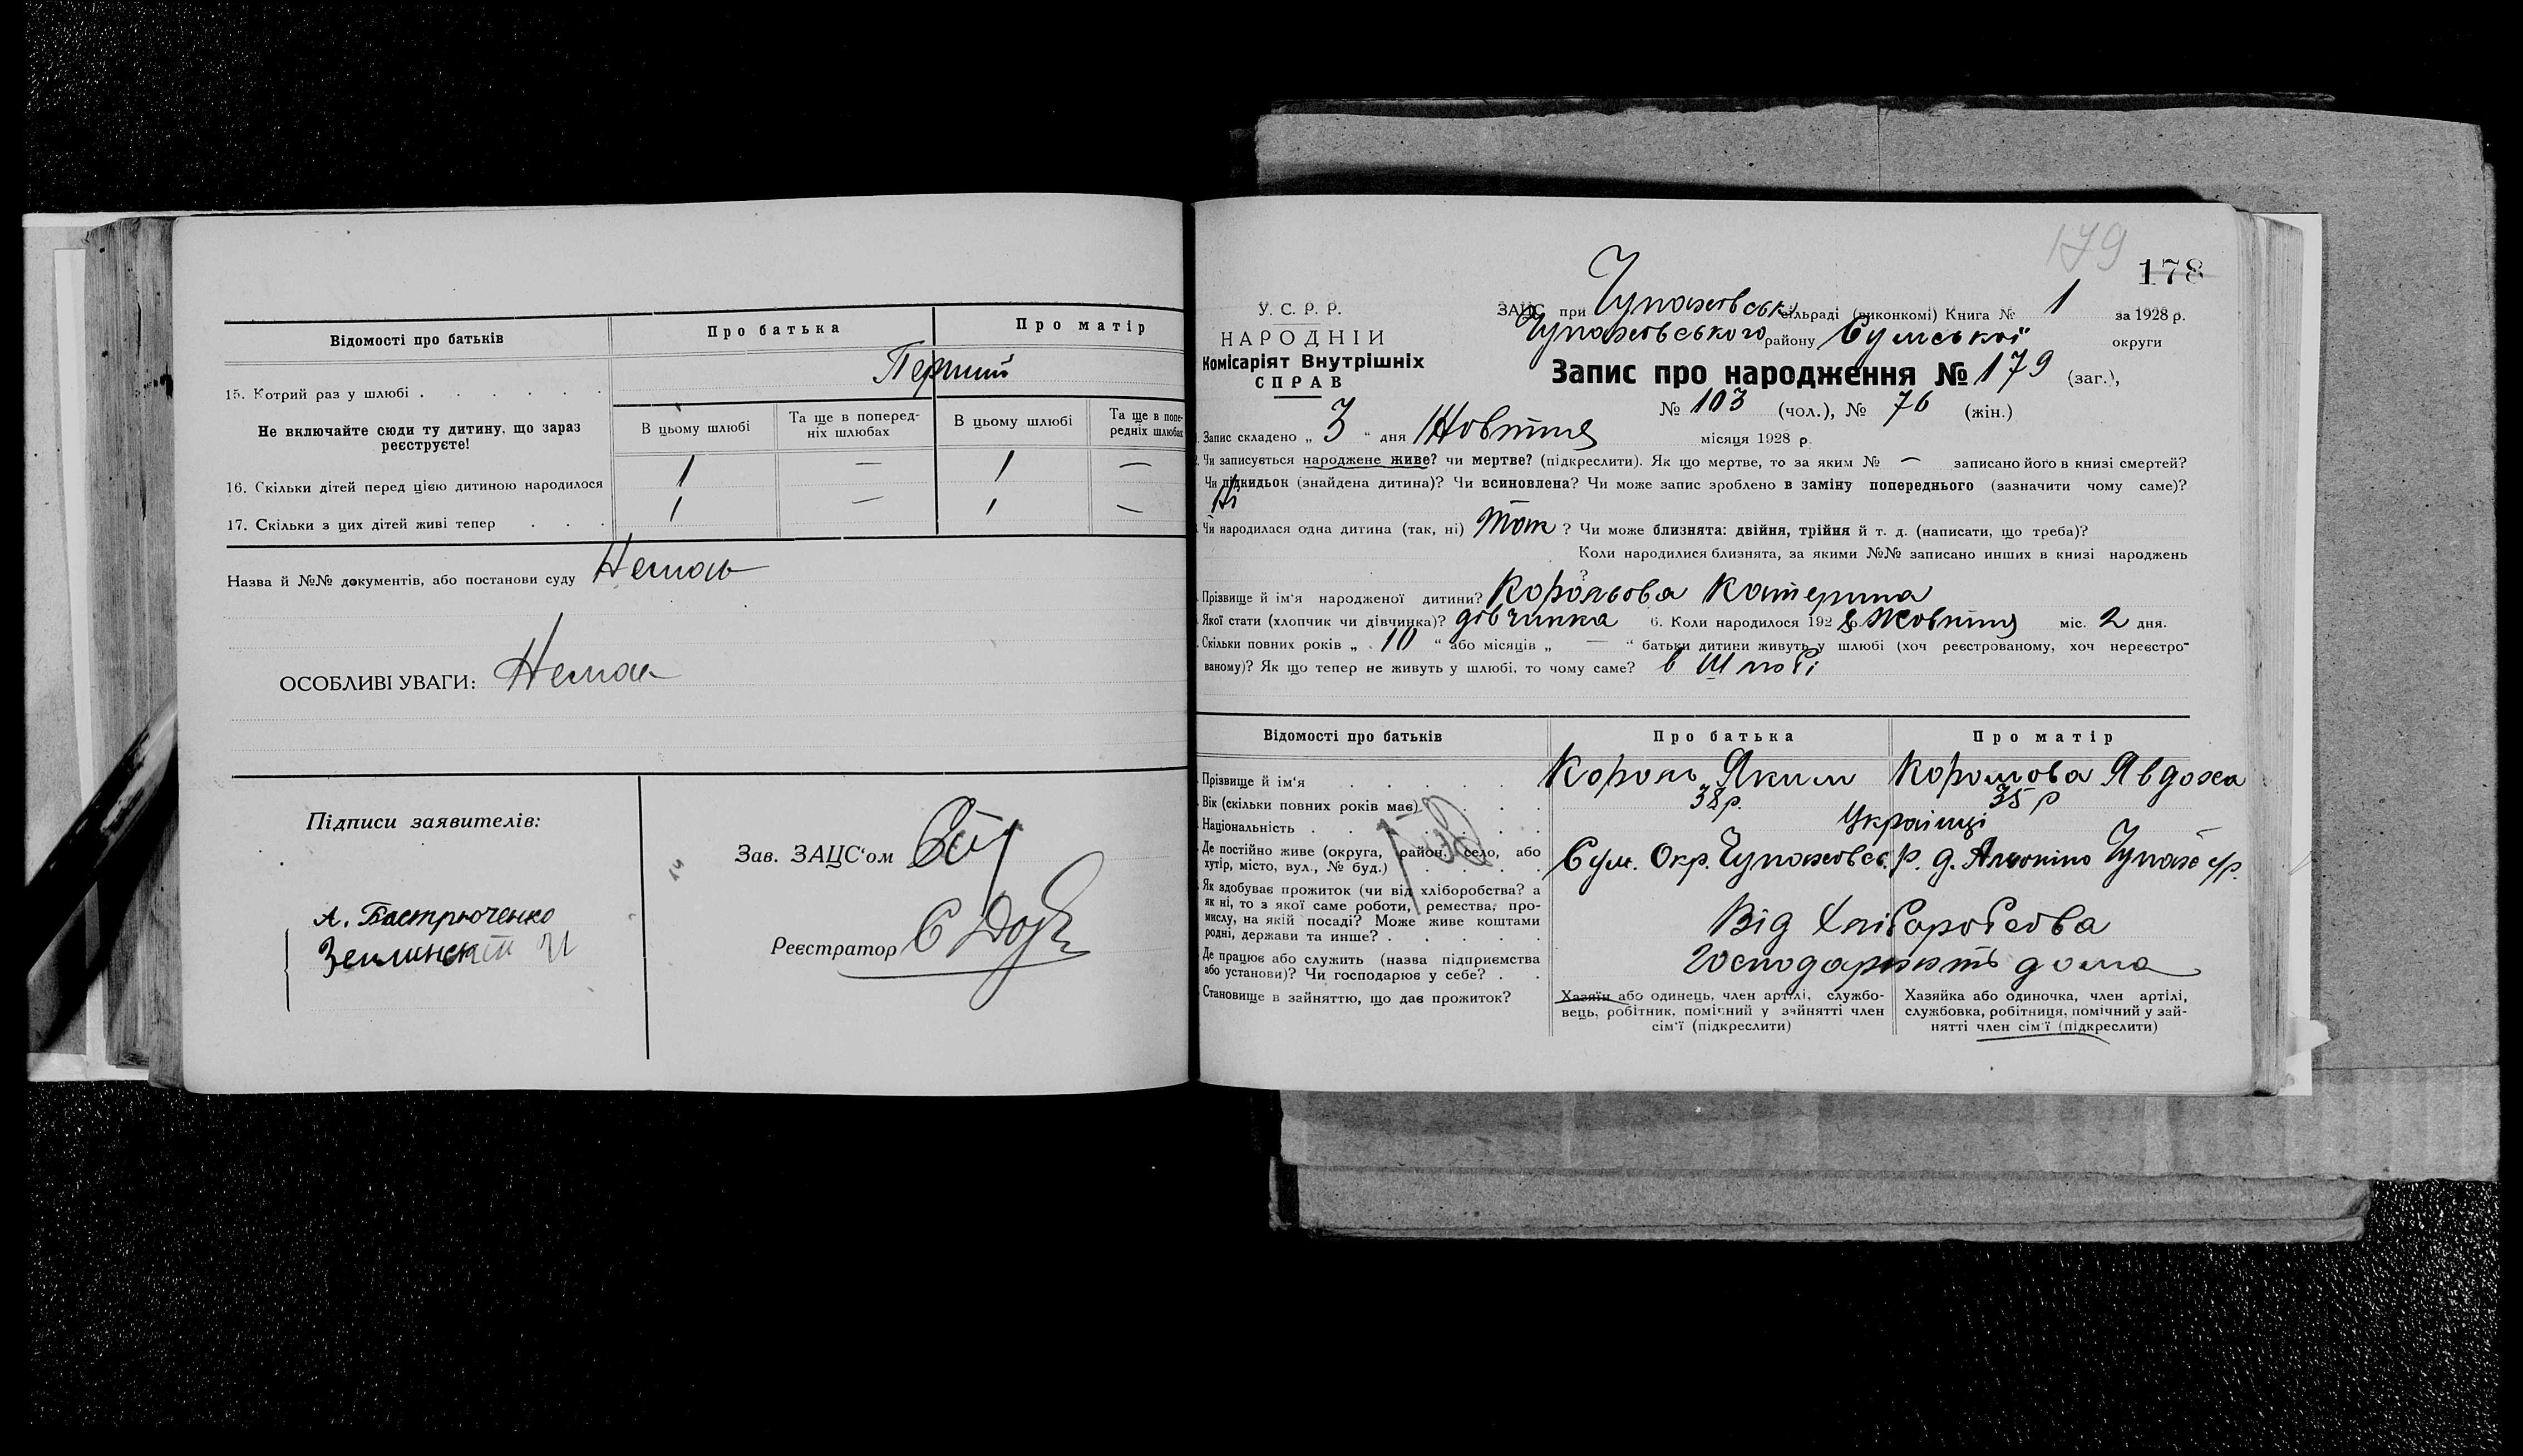 Відомості про батьків
Про батька
Про матір
15. Котрий раз у шлюбі . . . . . .
Перший
Не включайте сюди ту дитину, що зараз реєструєте!
В цьому шлюбі
Та ще в поперед-
ніх шлюбах
В цьому шлюбі
Та ще в попе-
редніх шлюбах
16. Скільки дітей перед цією дитиною народилося
1 — 1 —
17. Скільки з цих дітей живі тепер . . .
1 — 1 —
Назва й №№ документів, або постанови суду Немає
ОСОБЛИВІ УВАГИ: Немає
Підписи заявителів:
А. Бастрюченко
Зав. ЗАЦС'ом
Реєстратор
179
178
У. С. Р. Р.
НАРОДНІЙ
Комісаріят Внутрішніх
СПРАВ
ЗАЦС при Чупахівськ сільраді (виконкомі) Книга № 1 за 1928 р.
Чупахівського району Сумської округи
Запис про народження № 179 (заг.),
№ 103 (чол.), № 76 (жін.)
Запис складено „ 3 " дня Жовтня місяця 1928 р.
Чи записується народжене живе? чи мертве? (підкреслити). Як що мертве, то за яким № — записано його в книзі смертей?
Чи підкидьок (знайдена дитина)? Чи всиновлена? Чи може запис зроблено в заміну попереднього (зазначити чому саме)?
Ні
Чи народилася одна дитина (так, ні) так ? Чи може близнята: двійня, трійня й т. д. (написати, що треба)?
Коли народилися близнята, за якими №№ записано инших в книзі народжень
?
Прізвище й ім'я народженої дитини? Корольова Катерина
Якої стати (хлопчик чи дівчинка)? дівчинка 6. Коли народилося 1928 р. Жовтня міс. 2 дня.
Скільки повних років „ 10 " або місяців „ — " батьки дитини живуть у шлюбі (хоч реєстрованому, хоч нереєстро-
ваному)? Як що тепер не живуть у шлюбі, то чому саме? в шлюбі
Відомості про батьків
Про батька
Про матір
Прізвище й ім'я . . . . .
Король Яким
Корольова Явдоха
Вік (скільки повних років має) . . .
38 р.
35 р
Національність . . . . . . . .
Українці
Де постійно живе (округа, район, село, або
хутір, місто, вул., № буд.) . . . .
Сум. Окр. Чупахівськ. р. д.
Як здобуває прожиток (чи від хліборобства? а
як ні, то з якої саме роботи, ремества, про-
мислу, на якій посаді? Може живе коштами
родні, держави та инше? . . . . .
Від Хліборобства
Де працює або служить (назва підприємства
або установи)? Чи господарює у себе? . .
господарюють дома
Становище в зайняттю, що дає прожиток?
Хазяїн або одинець, член артілі, службо-
вець, робітник, помічний у зайнятті член
сім'ї (підкреслити)
Хазяйка або одиночка, член артілі,
службовка, робітниця, помічний у зай-
нятті член сім'ї (підкреслити)